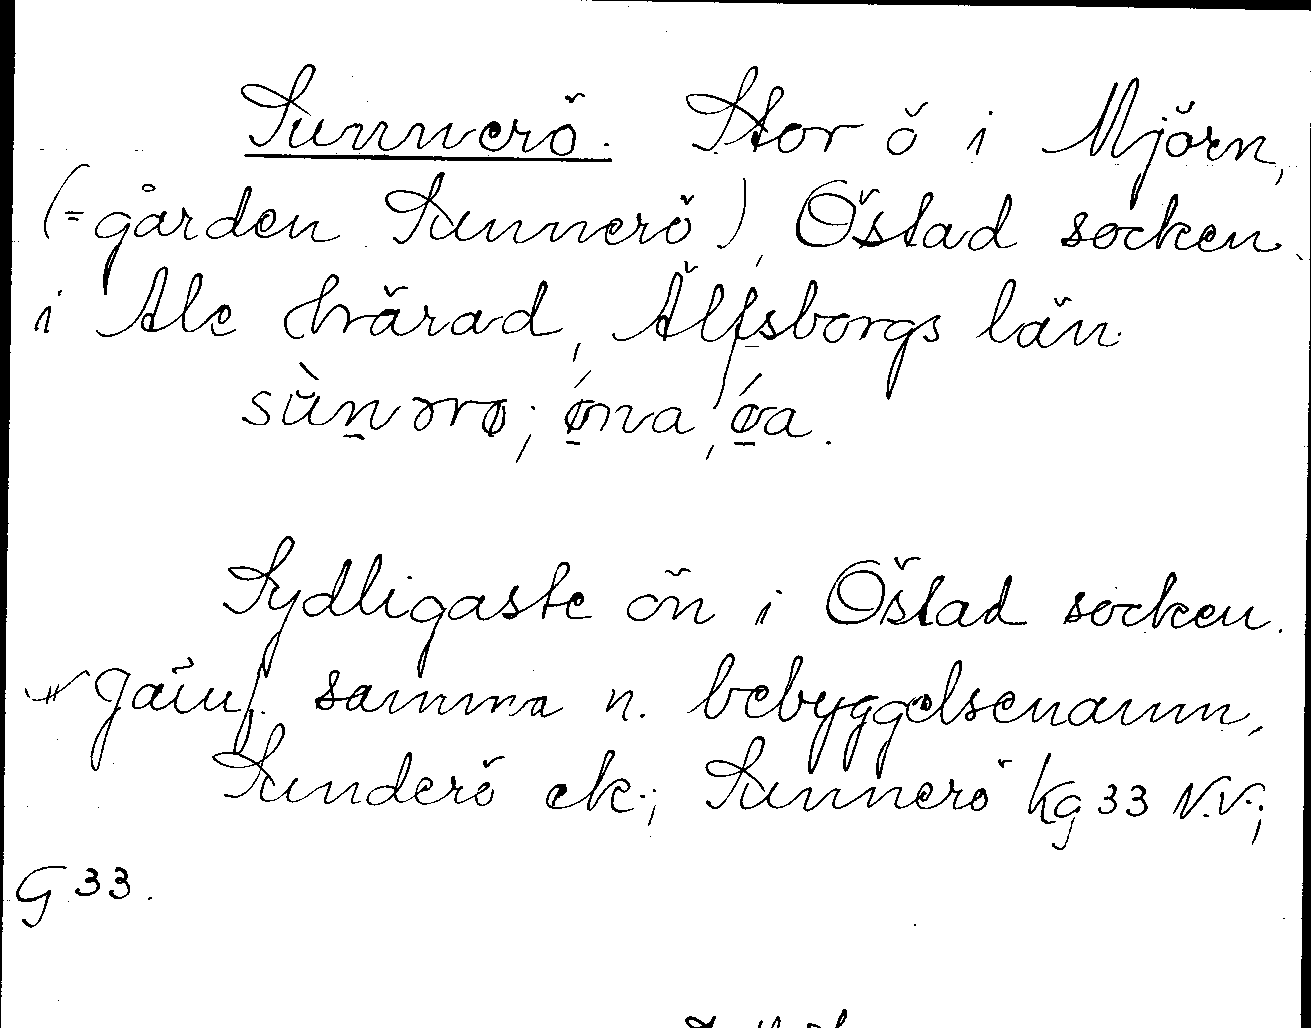 Sunnerö. Stor ö i Mjörn,
(= gården Sunnerö), Östad socken
i Ale härad, Älfsborgs län.
sùn̠ərø; ǿ̠na, ǿ̠a.
Sydligaste ön i Östad socken.
Jämf. samma n. bebyggelsenamn,
Sunderö ek.; Sunnerö Kg 33 N.V.;
G 33.